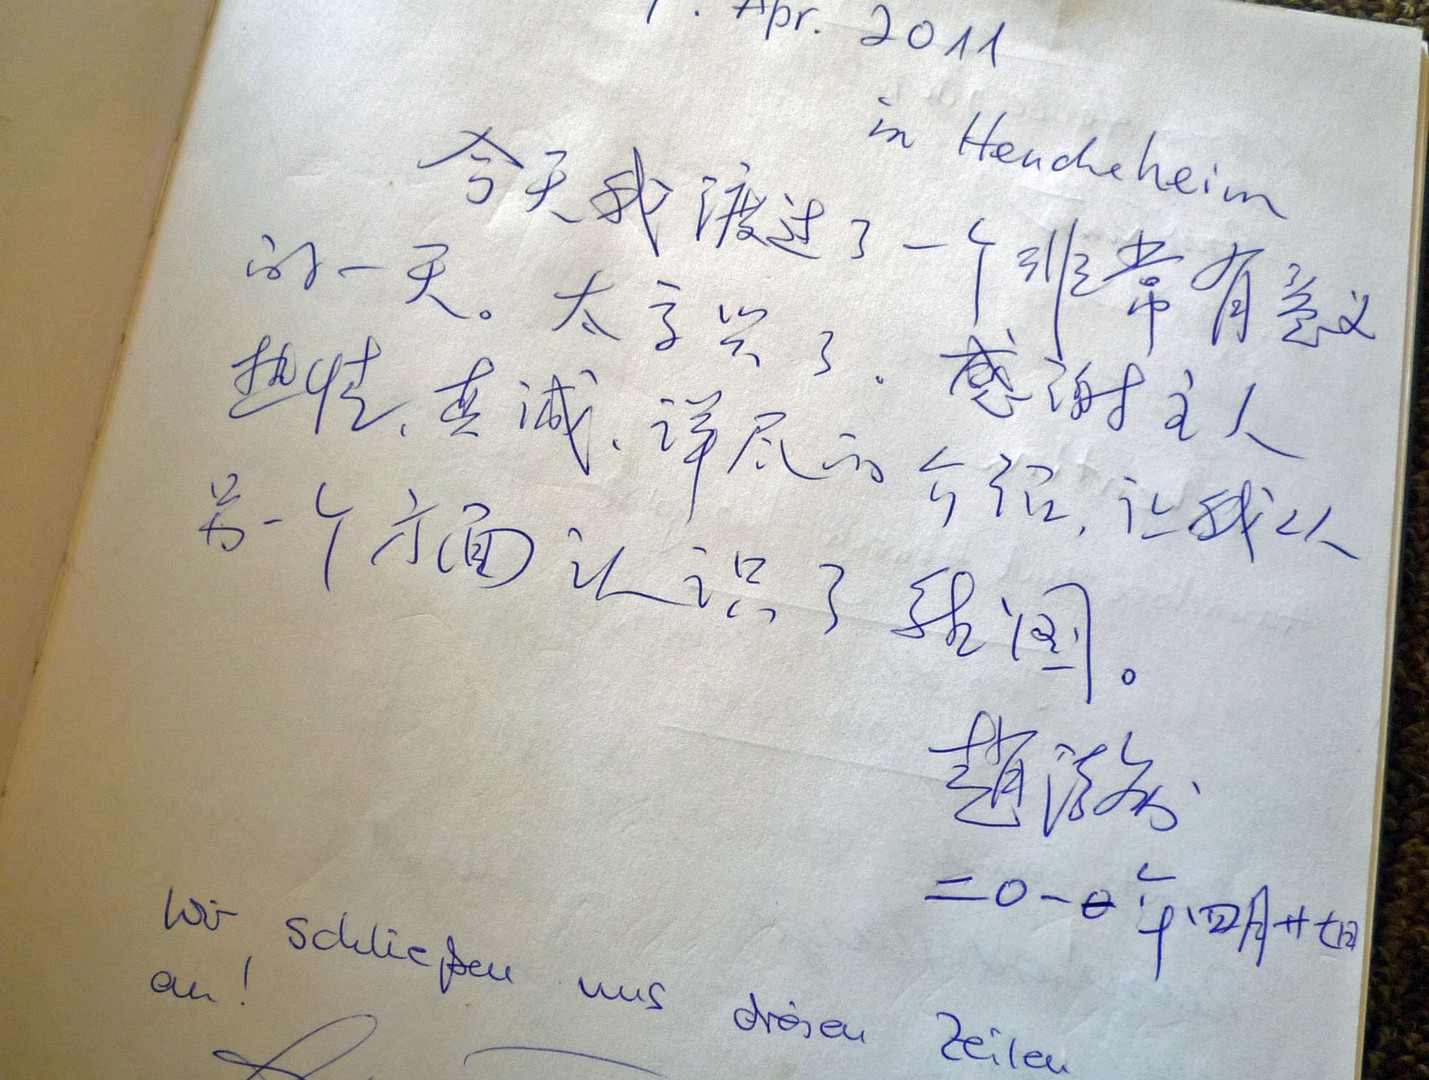 . Apr. 2011
in Heucheheim
今天我渡过了一个非常有意义
的一天。太高兴了。感谢主人
热情、真诚、详尽的介绍,让我从
另一个方面认识了德国。
趙
二0一0年四月廿七日
Wir schließen uns diesen Zeilen
an!